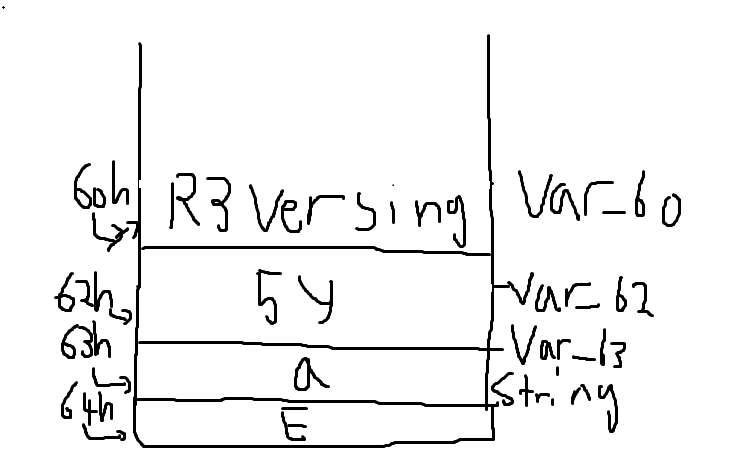 60h R3versing Var_60
62h 5y Var_62
63h a Var_13
64h E String